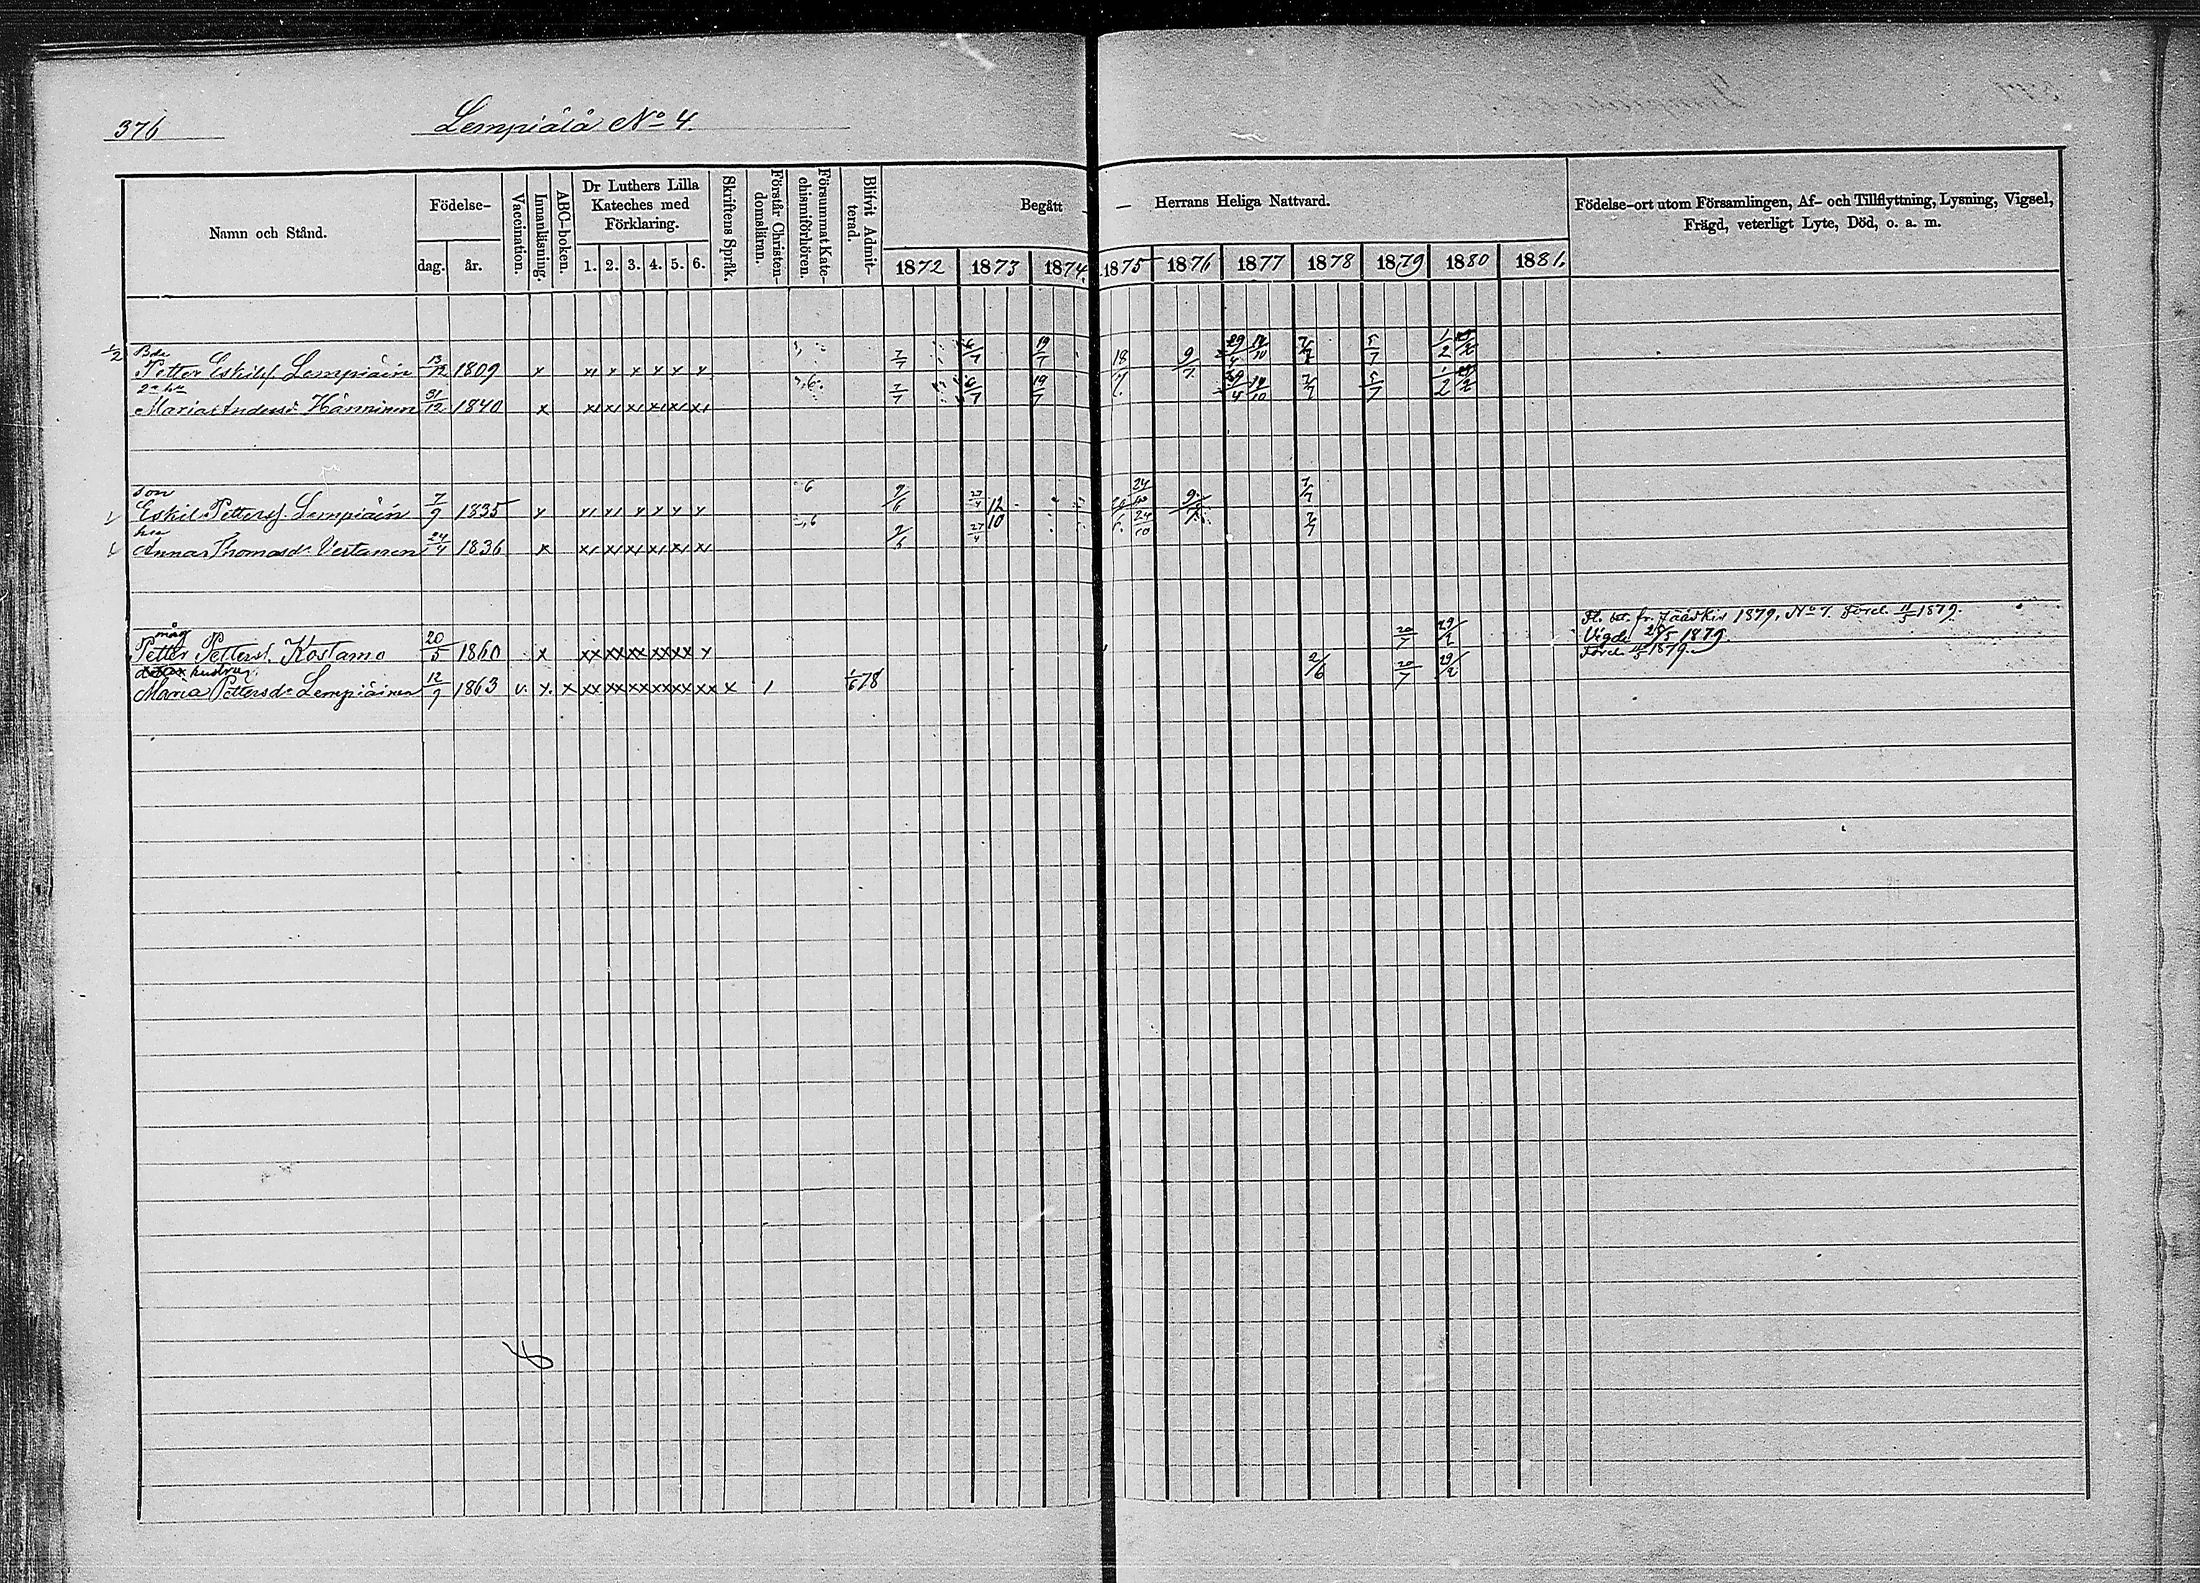 376
Lempiälä No 4.
Namn och Stånd.
Födelse-
dag.
år.
Vaccination.
Innanläsning.
ABC-boken.
Dr Luthers Lilla
Kateches med
Förklaring.
1. 2. 3. 4. 5. 6.
Skriftens Språk.
Förstår Christen-
domsläran.
Försummat Kate-
chismiförhören.
Blifvit Admit-
terad.
Begått — — Herrans Heliga Nattvard.
1872 1873 1874. 1875 1876 1877 1878 1879 1880 1881.
Födelse-ort utom Församlingen, Af- och Tillflyttning, Lysning, Vigsel,
Frägd, veterligt Lyte, Död, o. a. m.
1/2 Bde
Petter Eskilss. Lempiäin 13/12 1809 x x x x x x x 7/7 6/7 19/7 18 9/7 29/4 14/10 7/7 5/7 1/2
2a hu
Maria Andersd. Hänninen 31/12 1840 x x x x x x x 7/7 6/7 19/7 7. 29/4 14/10 7/7 5/7 1/2
son
Eskil Petterss. Lempiäin 7/9 1835 x x x x x x x 6 9/6 27/4 12/10 24/10 9/7 7/7
hu
Anna Thomasd. Vertanen 24/4 1836 x x x x x x x 6 9/6 27/4 24/10 7/7
måg
Petter Petterss. Kostamo 20/5 1860 x xx xx xx xx xx x 20/7 29/2 Fl. bet. fr. Jääskis 1879, No 7. Förel. 11/5 1879.
Vigde 29/5 1879.
hustru
Maria Pettersd. Lempiäinen 12/9 1863 v. x. x xx xx xx xx xx xx x 1 1/6 78 2/6 20/7 29/2 Förel. 11/5 1879.